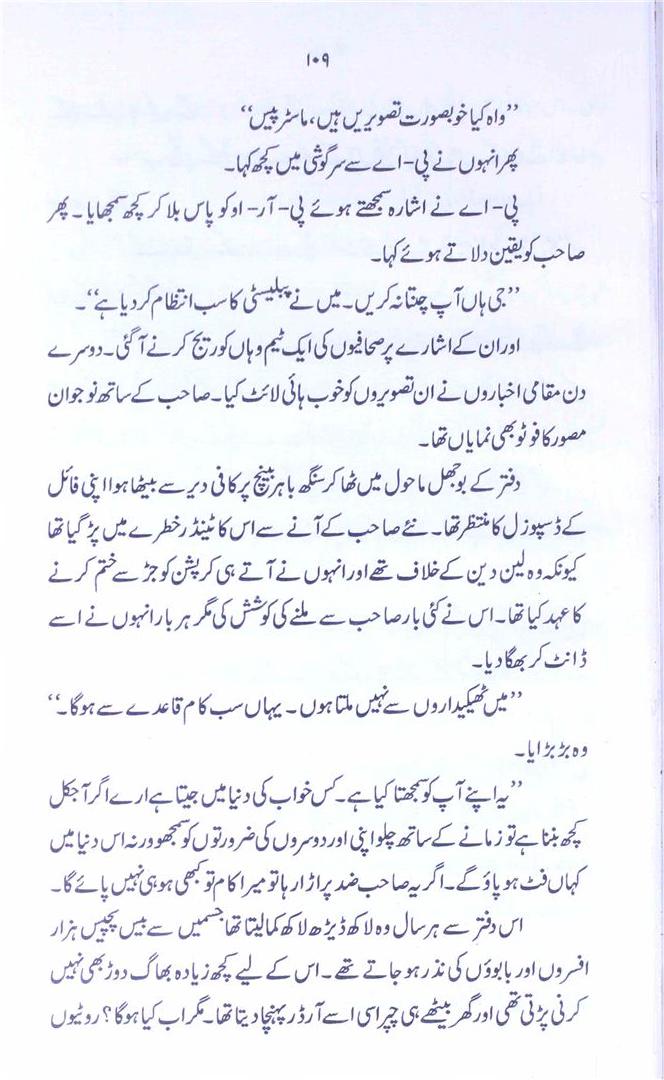 ۱۰۹
’’واہ کیا خوبصورت تصویریں ہیں، ماسٹر پیس‘‘
پھر انہوں نے پی-اے سے سرگوشی میں کچھ کہا۔
پی-اے نے اشارہ سمجھتے ہوئے پی-آر-او کو پاس بلا کر کچھ سمجھایا۔ پھر
صاحب کو یقین دلاتے ہوئے کہا۔
’’جی ہاں آپ چنتا نہ کریں۔ میں نے پبلیسٹی کا سب انتظام کر دیا ہے‘‘۔
اور ان کے اشارے پر صحافیوں کی ایک ٹیم وہاں کوریج کرنے آ گئی۔ دوسرے
دن مقامی اخباروں نے ان تصویروں کو خوب ہائی لائٹ کیا۔ صاحب کے ساتھ نوجوان
مصور کا فوٹو بھی نمایاں تھا۔
دفتر کے بوجھل ماحول میں ٹھاکر سنگھ باہر بینچ پر کافی دیر سے بیٹھا ہوا اپنی فائل
کے ڈسپوزل کا منتظر تھا۔ نئے صاحب کے آنے سے اس کا ٹینڈر خطرے میں پڑ گیا تھا
کیونکہ وہ لین دین کے خلاف تھے اور انہوں نے آتے ہی کرپشن کو جڑ سے ختم کرنے
کا عہد کیا تھا۔ اس نے کئی بار صاحب سے ملنے کی کوشش کی مگر ہر بار انہوں نے اسے
ڈانٹ کر بھگا دیا۔
’’میں ٹھیکیداروں سے نہیں ملتا ہوں۔ یہاں سب کام قاعدے سے ہوگا۔‘‘
وہ بڑبڑایا۔
’’یہ اپنے آپ کو سمجھتا کیا ہے۔ کس خواب کی دنیا میں جیتا ہے ارے اگر آجکل
کچھ بننا ہے تو زمانے کے ساتھ چلو اپنی اور دوسروں کی ضرورتوں کو سمجھو ورنہ اس دنیا میں
کہاں فٹ ہو پاؤ گے۔ اگر یہ صاحب ضد پر اڑا رہا تو میرا کام تو کبھی ہو ہی نہیں پائے گا۔
اس دفتر سے ہر سال وہ لاکھ ڈیڑھ لاکھ کما لیتا تھا جسمیں سے بیس پچیس ہزار
افسروں اور بابوؤں کی نذر ہو جاتے تھے۔ اس کے لیے کچھ زیادہ بھاگ دوڑ بھی نہیں
کرنی پڑتی تھی اور گھر بیٹھے ہی چپراسی اسے آرڈر پہنچا دیتا تھا۔ مگر اب کیا ہوگا؟ روٹیوں